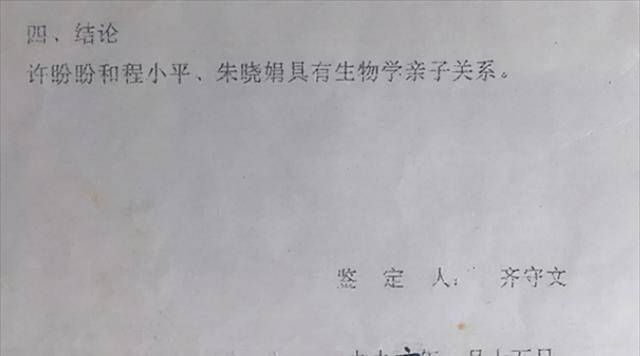 四、结论
许盼盼和程小平、朱晓娟具有生物学亲子关系。
鉴 定 人： 齐守文